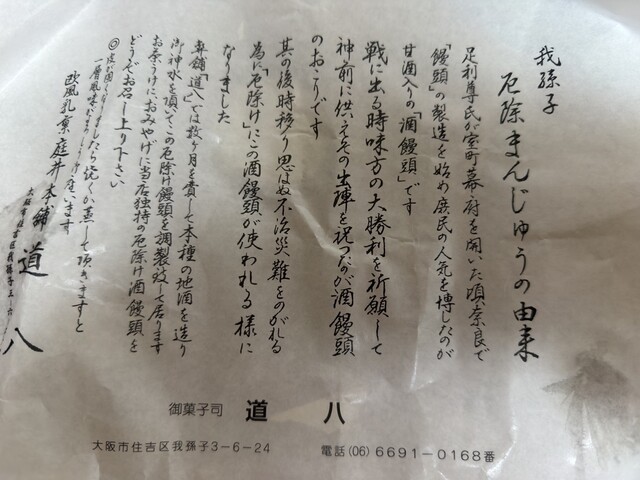 我孫子
厄除まんじゅうの由来
足利尊氏が室町幕府を開いた頃奈良で
「饅頭」の製造を始め庶民の人気を博したのが
甘酒入りの「酒饅頭」です
戦に出る時味方の大勝利を祈願して
神前に供えその出陣を祝つたのが酒饅頭
のおこりです
其の後時移り思はぬ不治災難をのがれる
為に「厄除け」にこの酒饅頭が使われる様に
なりました
弊舗「道八」では数ヶ月を費して本種の地酒を造り
御神水を頂いてこの厄除け饅頭を調製致して居ります
お茶うけにおみやげに当店独特の厄除け酒饅頭を
どうぞお召し上り下さい
◎皮が固くなりましたら焼くか蒸して頂きますと
一層風味
欧風乳菓・庭井本舗 道八
大阪市住吉区我孫子三ノ六
御菓子司 道八
大阪市住吉区我孫子3-6-24 電話(06)6691-0168番